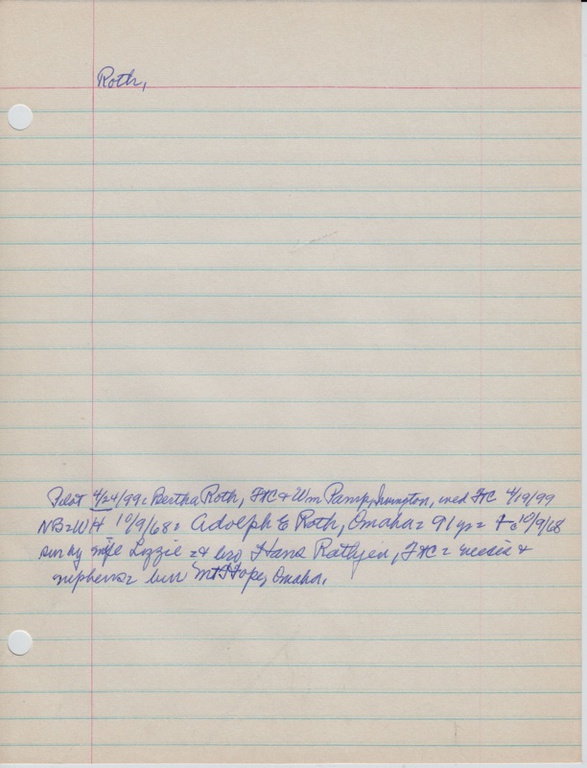 Roth,
Pilot 4/24/99: Bertha Roth, FtC & Wm Pamp, Irvington, wed FtC 4/19/99
NB=WH 10/9/68= Adolph E Roth, Omaha= 91 yr= + c 10/9/68
sur by wife Lizzie =& bro Hans Rathjen, FtC = nieces &
nephews= bur Mt Hope, Omaha.